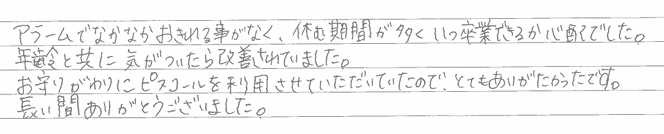 アラームでなかなかおきれる事がなく、休む期間が多くいつ卒業できるか心配でした。
年齢と共に気がついたら改善されていました。
お守りがわりにピスコールを利用させていただいていたので、とてもありがたかったです。
長い間ありがとうございました。